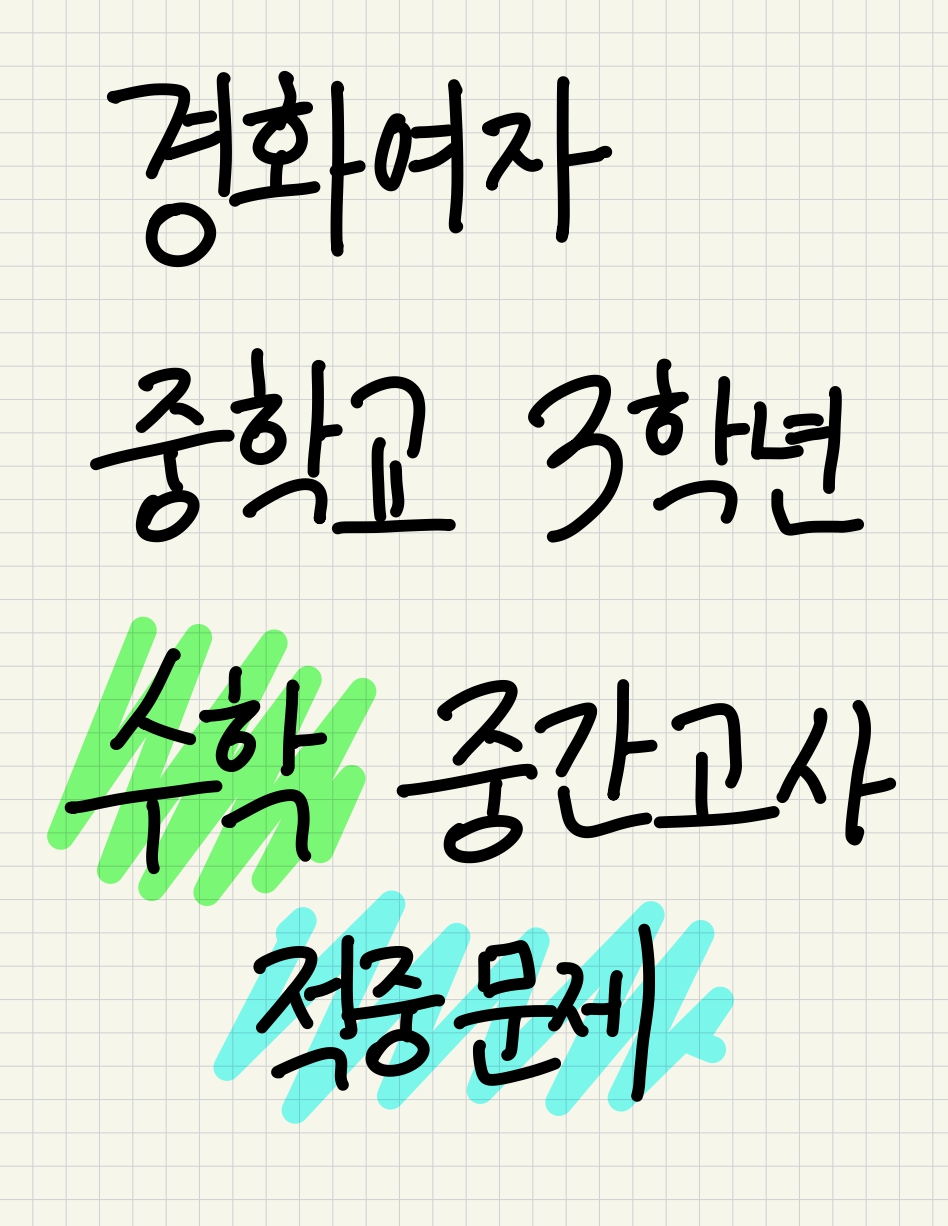 경화여자
중학교 3학년
수학 중간고사
적중문제